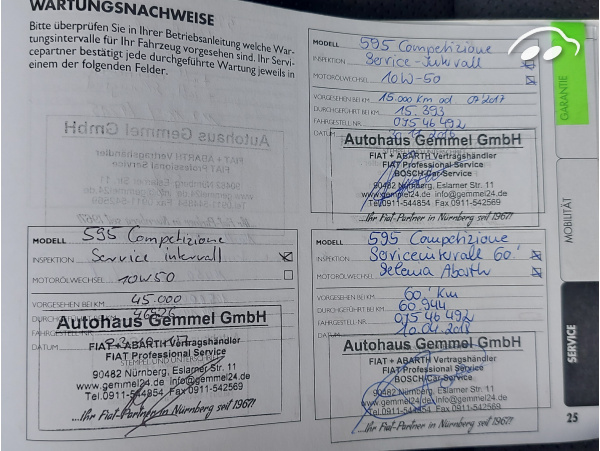 WARTUNGSNACHWEISE
Bitte überprüfen Sie in Ihrer Betriebsanleitung welche War-
tungsintervalle für Ihr Fahrzeug vorgesehen sind. Ihr Servi-
cepartner bestätigt jede durchgeführte Wartung jeweils in
einem der folgenden Felder.
MODELL 595 Competizione
INSPEKTION Service-Intervall
MOTORÖLWECHSEL 10W-50
VORGESEHEN BEI KM 15.000 km od 07/2017
DURCHGEFÜHRT BEI KM 15.393
FAHRGESTELL NR. 075 46 492
DATUM
Autohaus Gemmel GmbH
FIAT + ABARTH Vertragshändler
FIAT Professional Service
BOSCH Car Service
90482 Nürnberg, Eslarner Str. 11
www.gemmel24.de info@gemmel24.de
Tel.0911-544854 Fax 0911-542569
...Ihr Fiat-Partner in Nürnberg seit 1967!
MODELL 595 Competizione
INSPEKTION Service intervall
MOTORÖLWECHSEL 10W50
VORGESEHEN BEI KM 45.000
DURCHGEFÜHRT BEI KM
FAHRGESTELL NR.
DATUM
Autohaus Gemmel GmbH
FIAT + ABARTH Vertragshändler
FIAT Professional Service
90482 Nürnberg, Eslarner Str. 11
www.gemmel24.de info@gemmel24.de
Tel.0911-544854 Fax 0911-542569
...Ihr Fiat-Partner in Nürnberg seit 1967!
MODELL 595 Competizione
INSPEKTION Serviceintervall 60'
MOTORÖLWECHSEL Selenia Abarth
VORGESEHEN BEI KM 60' km
DURCHGEFÜHRT BEI KM 60.944
FAHRGESTELL NR. 075 46 492
DATUM 10.04.2018
Autohaus Gemmel GmbH
FIAT + ABARTH Vertragshändler
FIAT Professional Service
BOSCH Car Service
90482 Nürnberg, Eslarner Str. 11
www.gemmel24.de info@gemmel24.de
Tel.0911-544854 Fax 0911-542569
...Ihr Fiat-Partner in Nürnberg seit 1967!
GARANTIE
MOBILITÄT
SERVICE
25